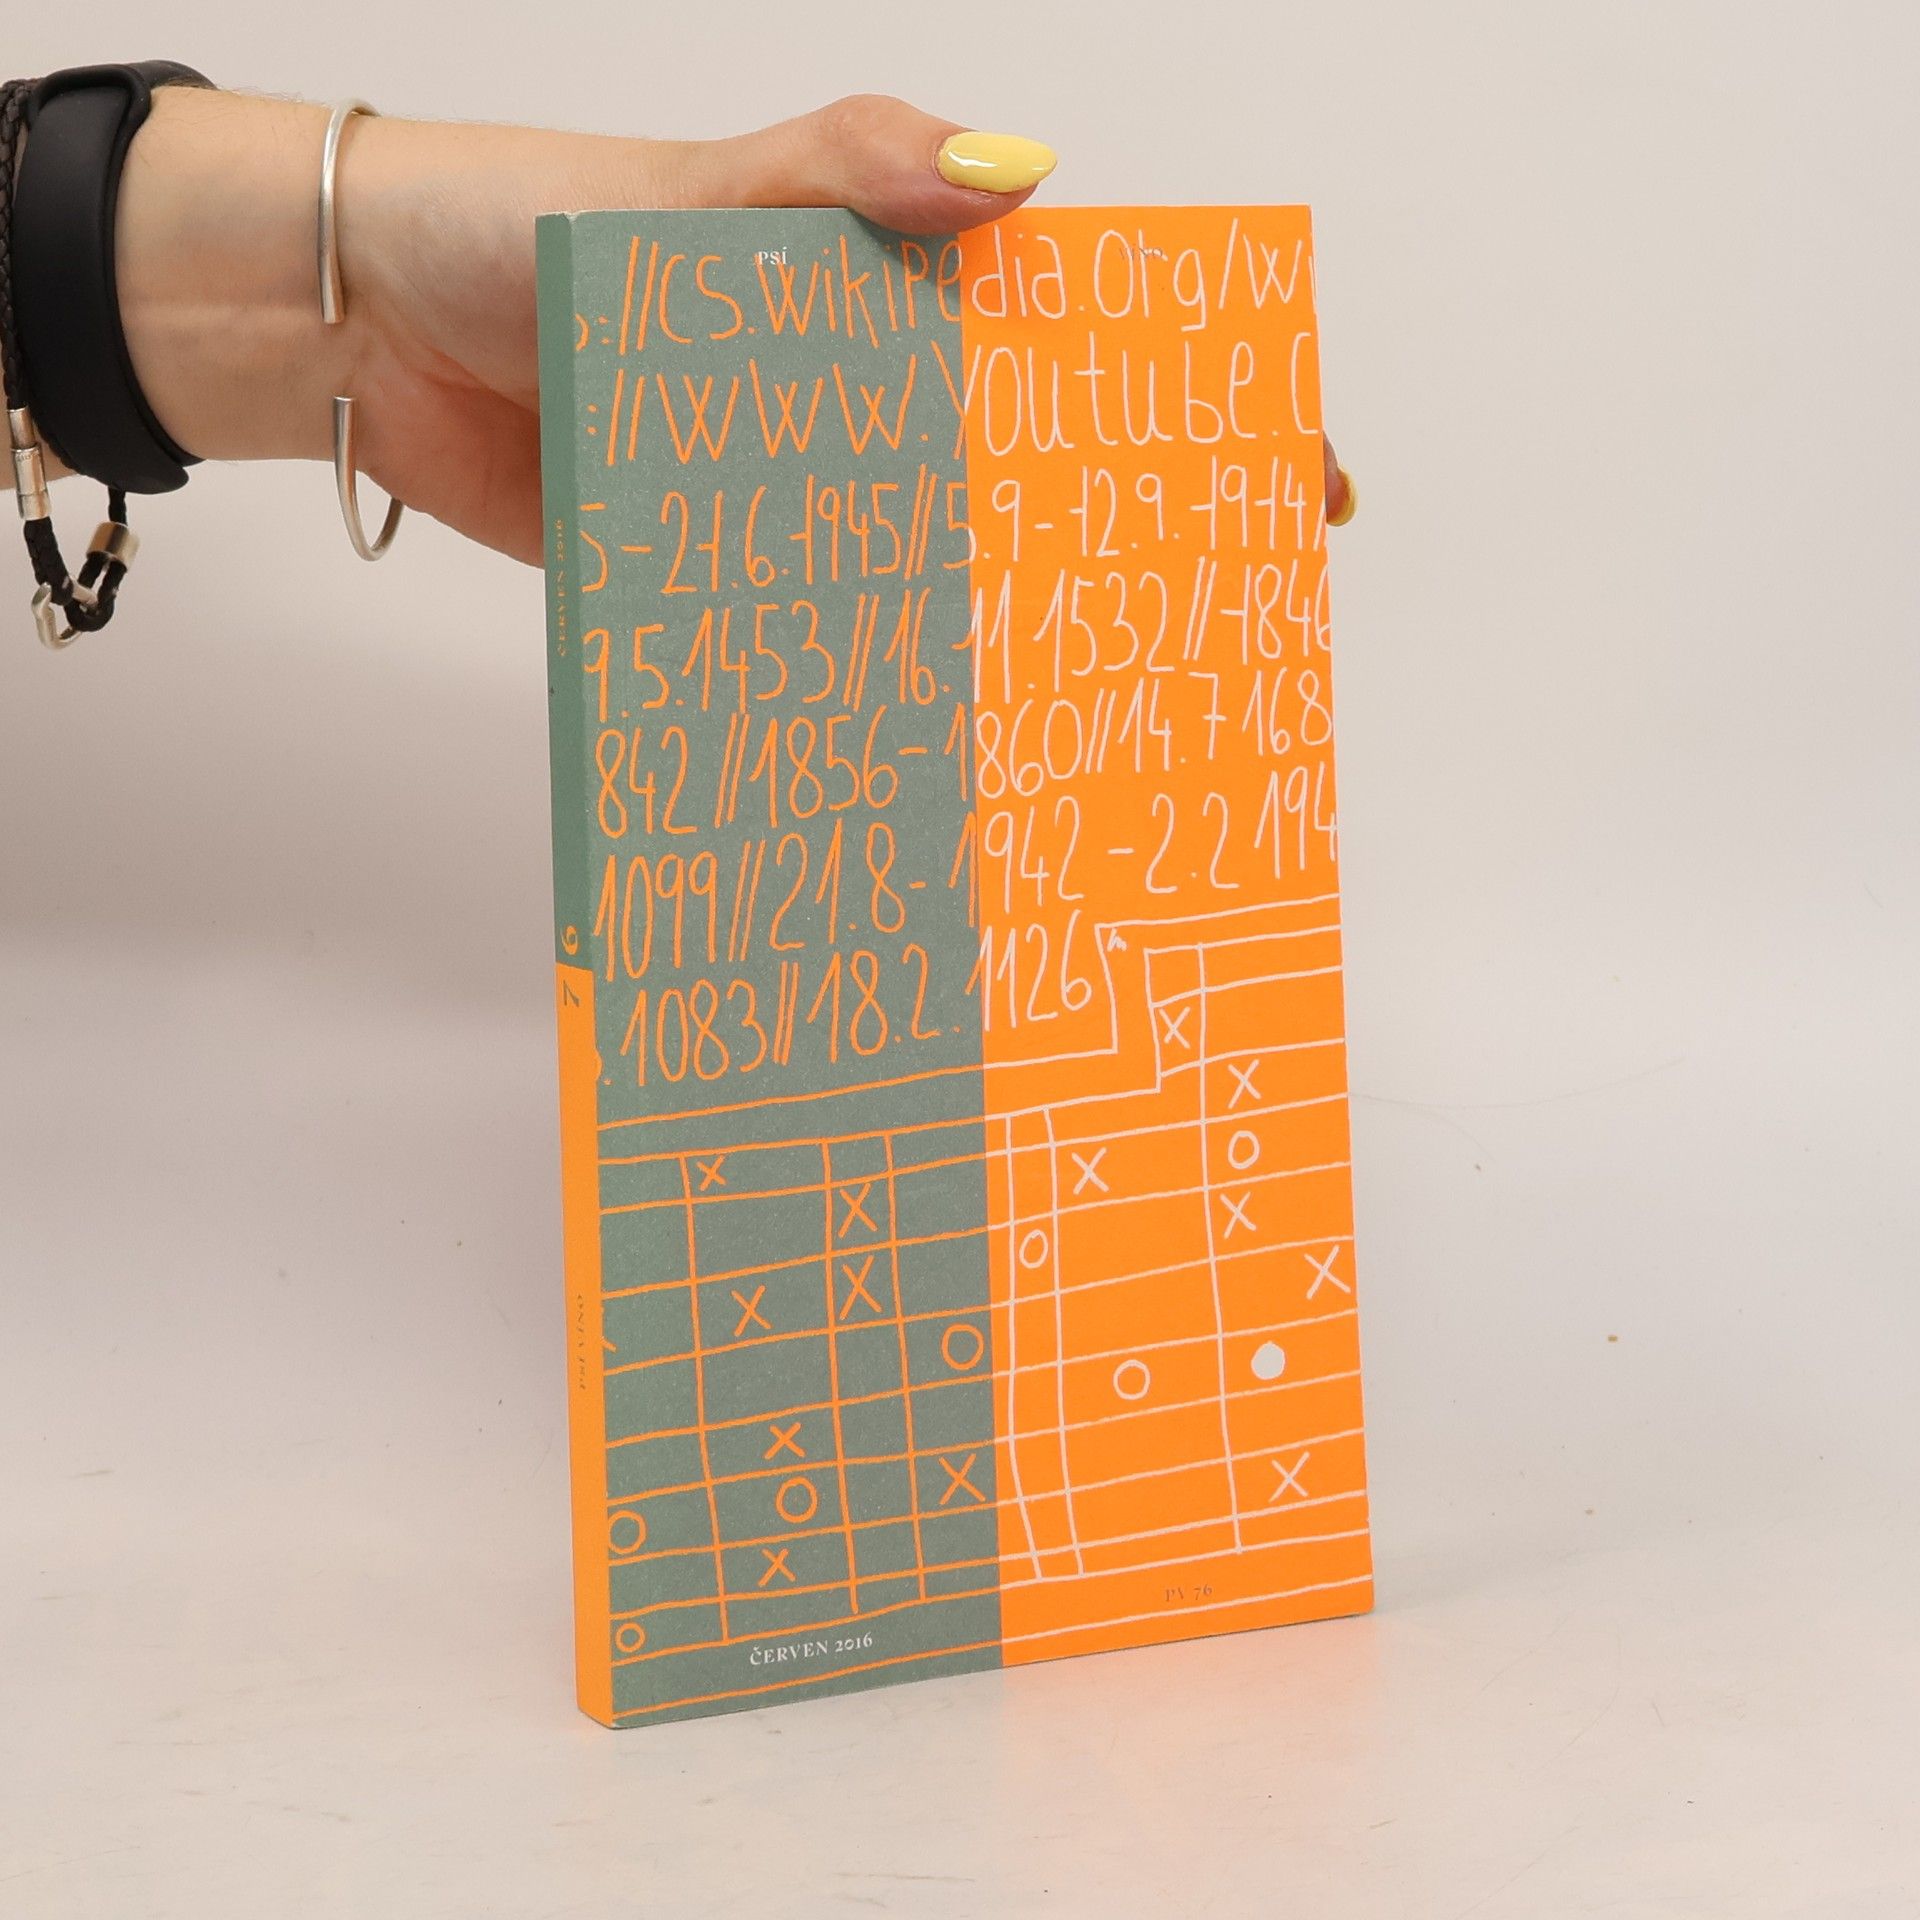 PSÍ VÍNO
://CS.WikiPedia.Org/Wi
://WWW.Youtube.C
5-21.6.1945//5.9-12.9.1914/
9.5.1453//16.11.1532//1846
842//1856-1860//14.7 168
1099//21.8-1942-2.2 194
.1083//18.2.1126
ČERVEN 2016
PV 76
ČERVEN 2016
76
PSÍ VÍNO